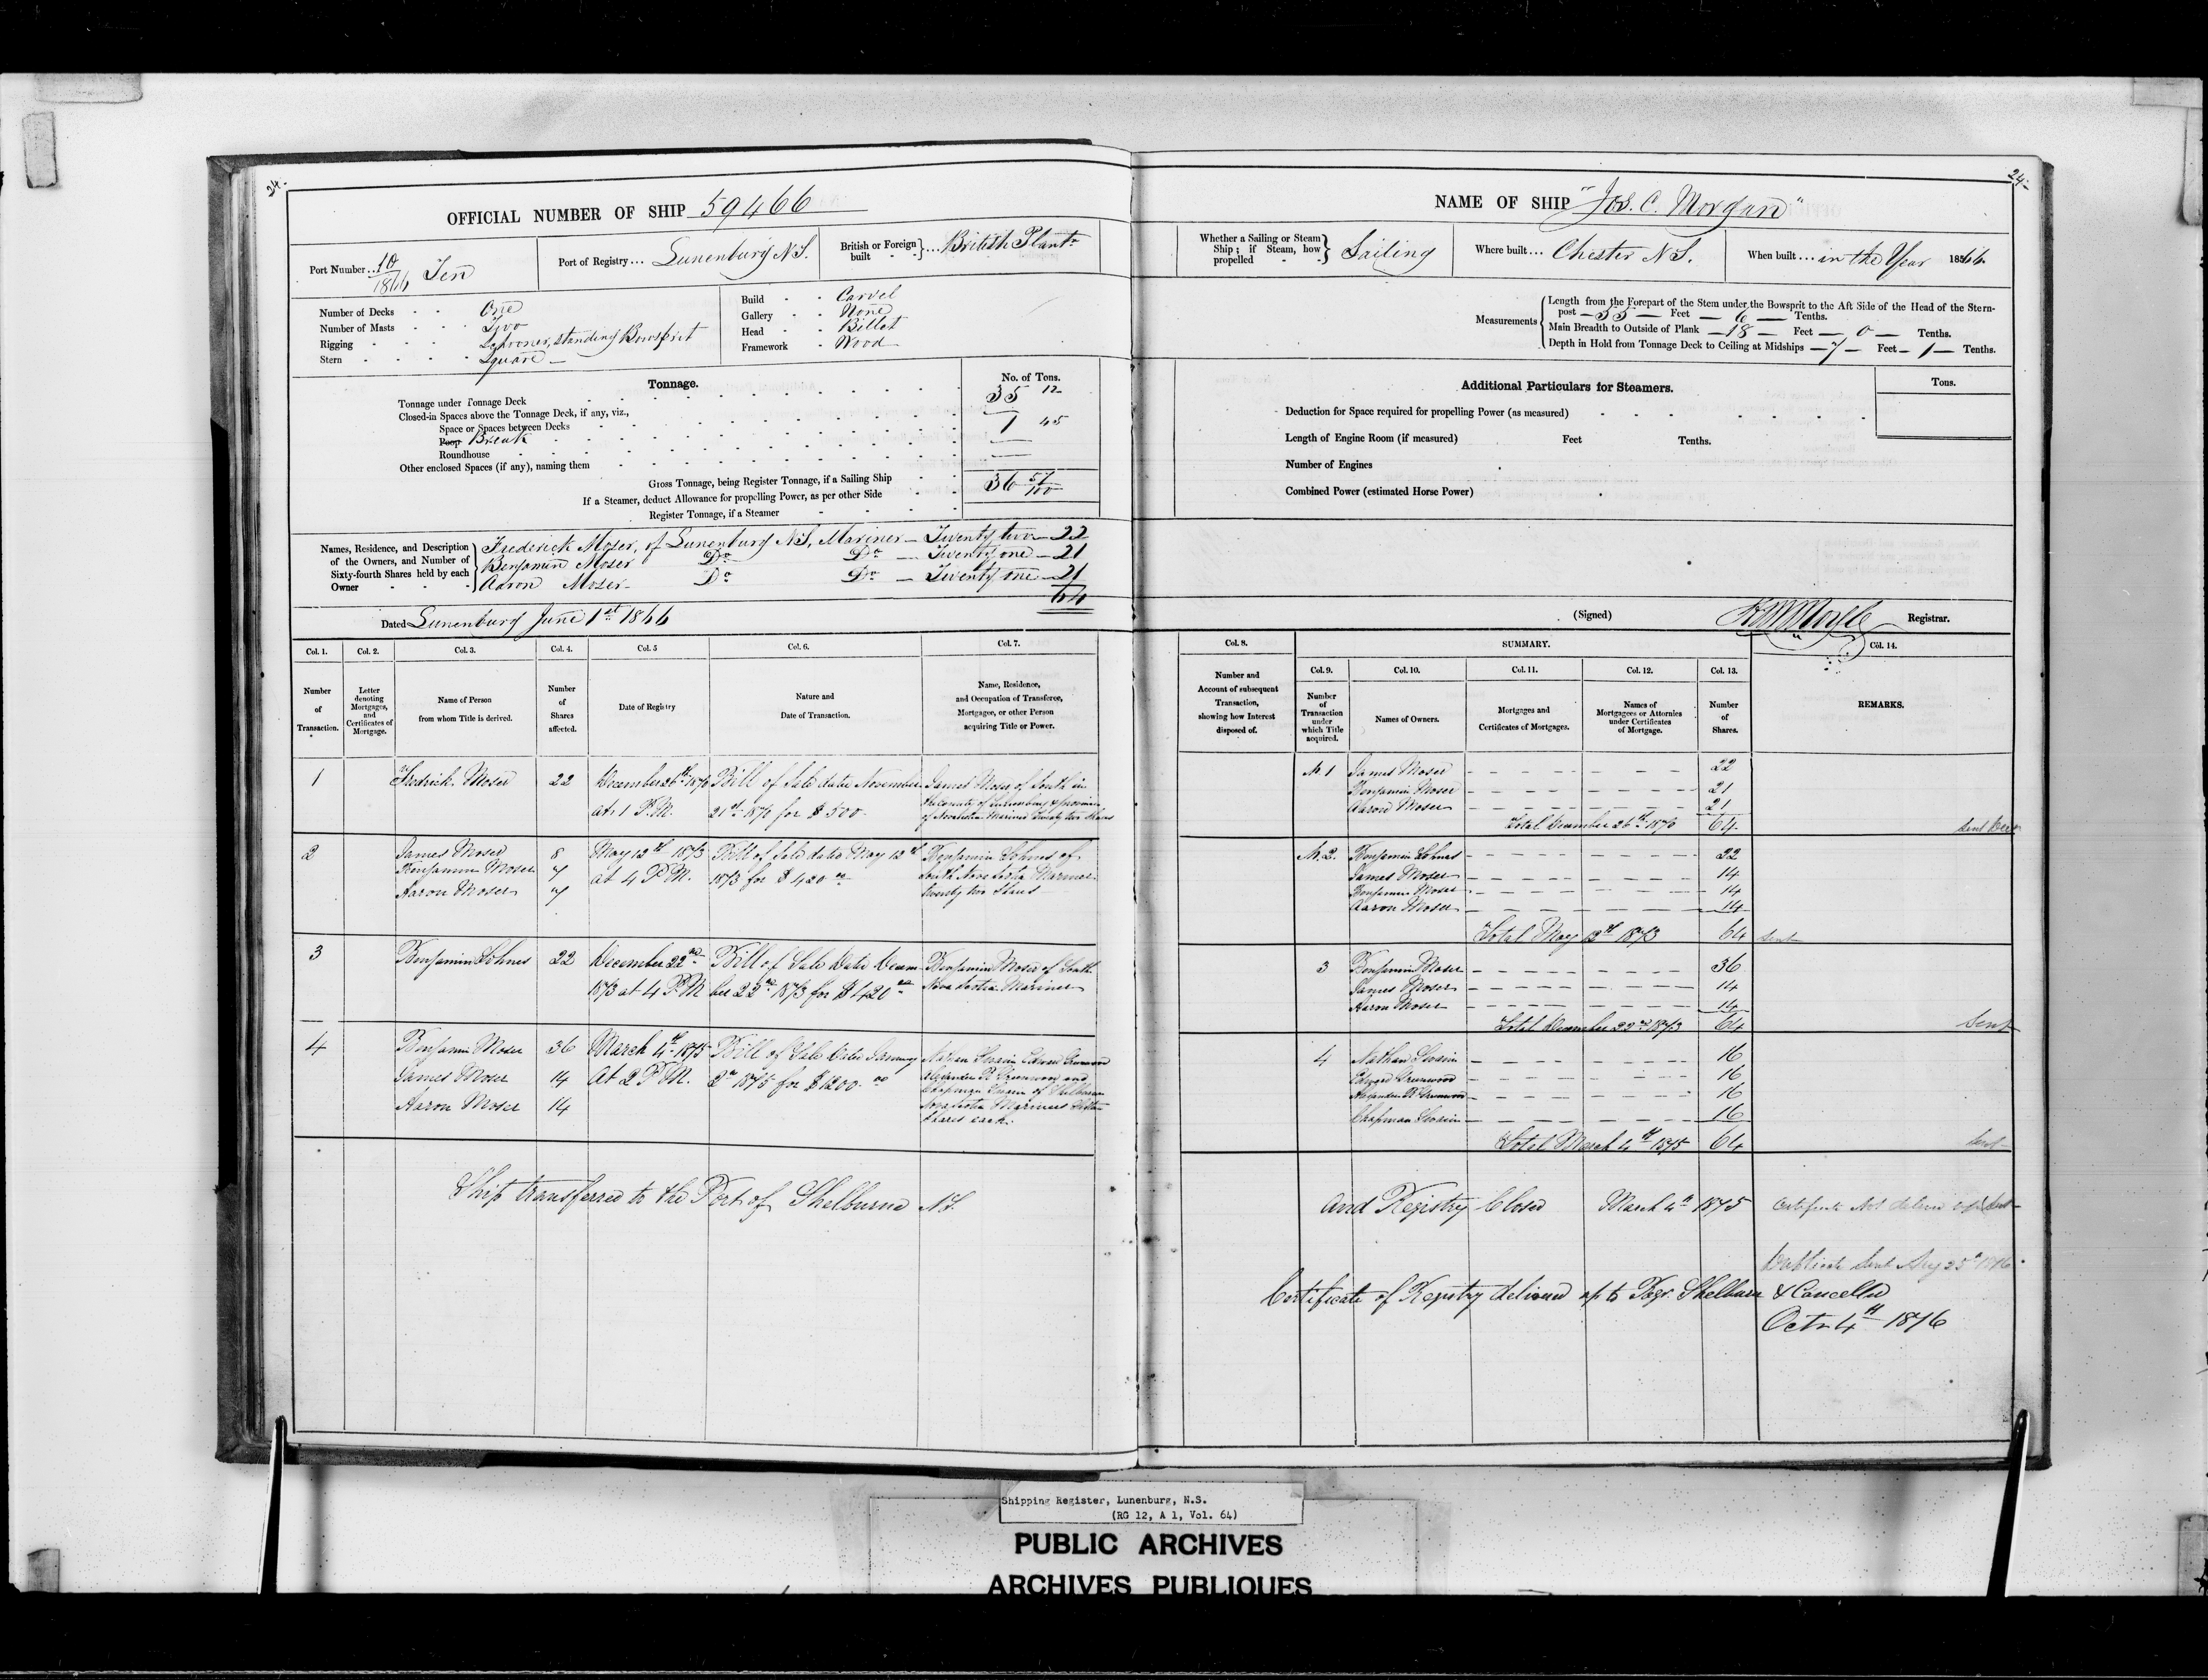 24.
OFFICIAL NUMBER OF SHIP 59466
Port Number .. 10/1866 Ten
Port of Registry ... Lunenburg N.S.
British or Foreign built } ... British Plantn
Number of Decks - - One
Number of Masts - - Two
Rigging - - - Schooner, standing Bowsprit
Stern - - - Square
Build - - Carvel
Gallery - - None
Head - - Billet
Framework - Wood
Tonnage.
No. of Tons.
Tonnage under Tonnage Deck 35 12
Closed-in Spaces above the Tonnage Deck, if any, viz.,
Space or Spaces between Decks
Poop Break 1 45
Roundhouse
Other enclosed Spaces (if any), naming them
Gross Tonnage, being Register Tonnage, if a Sailing Ship 36 57/100
If a Steamer, deduct Allowance for propelling Power, as per other Side
Register Tonnage, if a Steamer
Names, Residence, and Description of the Owners, and Number of Sixty-fourth Shares held by each Owner
Frederick Moser, of Lunenburg N.S, Mariner — Twenty two — 22
Benjamin Moser Do Do — Twenty one — 21
Aaron Moser Do Do — Twenty one — 21
64
Dated Lunenburg June 1st 1866
Col. 1. Col. 2. Col. 3. Col. 4. Col. 5 Col. 6. Col. 7.
Number of Transaction.
Letter denoting Mortgages, and Certificates of Mortgage.
Name of Person from whom Title is derived.
Number of Shares affected.
Date of Registry
Nature and Date of Transaction.
Name, Residence, and Occupation of Transferee, Mortgagee, or other Person acquiring Title or Power.
1 Fredrick Moser 22 December 26th 1870 Bill of Sale dated November James Moser of South in
at 1 P.M. 21st 1870 for $500 the county of Lunenburg & province
of Novascotia Mariner Twenty two Shares
2 James Moser 8 May 12th 1873 Bill of Sale dated May 12th Benjamin Lohnes of
Benjamin Moser 7 at 4 P.M. 1873 for $420 00 South Nova Scotia Mariner
Aaron Moser 7 twenty two Shares
3 Benjamin Lohnes 22 December 22nd Bill of Sale Dated Decem Benjamin Moser of South
1873 at 4 P.M ber 22nd 1873 for $420 00 Nova Scotia Mariner
4 Benjamin Moser 36 March 4th 1875 Bill of Sale Dated January Nathan Swain Edward Greenwood
James Moser 14 At 2 P.M. 2n 1875 for $1200 00 Alexander R Greenwood and
Aaron Moser 14 Chapman Swain of Shelburne
Nova Scotia Mariners Sixteen
Shares each.
Ship transferred to the Port of Shelburne N.S.
24.
NAME OF SHIP "Jos. C. Morgan"
Whether a Sailing or Steam Ship; if Steam, how propelled } Sailing
Where built ... Chester N.S.
When built ... in the Year 1866
Measurements
Length from the Forepart of the Stem under the Bowsprit to the Aft Side of the Head of the Stern-
post — 55 — Feet — 6 — Tenths.
Main Breadth to Outside of Plank — 18 — Feet — 0 — Tenths.
Depth in Hold from Tonnage Deck to Ceiling at Midships — 7 — Feet — 1 — Tenths.
Additional Particulars for Steamers.
Tons.
Deduction for Space required for propelling Power (as measured)
Length of Engine Room (if measured) Feet Tenths.
Number of Engines
Combined Power (estimated Horse Power)
(Signed) Registrar.
Col. 8. SUMMARY. Col. 14.
Col. 9. Col. 10. Col. 11. Col. 12. Col. 13.
Number and Account of subsequent Transaction, showing how Interest disposed of.
Number of Transaction under which Title acquired.
Names of Owners.
Mortgages and Certificates of Mortgages.
Names of Mortgagees or Attornies under Certificates of Mortgage.
Number of Shares.
REMARKS.
No. 1 James Moser 22
Benjamin Moser 21
Aaron Moser 21
Total December 26th 1870 64
No. 2. Benjamin Lohnes 22
James Moser 14
Benjamin Moser 14
Aaron Moser 14
Total May 12th 1873 64 Sent
3 Benjamin Moser 36
James Moser 14
Aaron Moser 14
Total December 22nd 1873 64 Sent
4 Nathan Swain 16
Edward Greenwood 16
Alexander R Greenwood 16
Chapman Swain 16
Total March 4th 1875 64 Sent
And Registry Closed March 4th 1875 Certificate Not deliverd up
Dublicate Sent Aug 25th 1876
Certificate of Registry deliverd up to Regr. Shelburn & Cancelled
Octr 4th 1876
Shipping Register, Lunenburg, N.S.
(RG 12, A 1, Vol. 64)
PUBLIC ARCHIVES
ARCHIVES PUBLIQUES